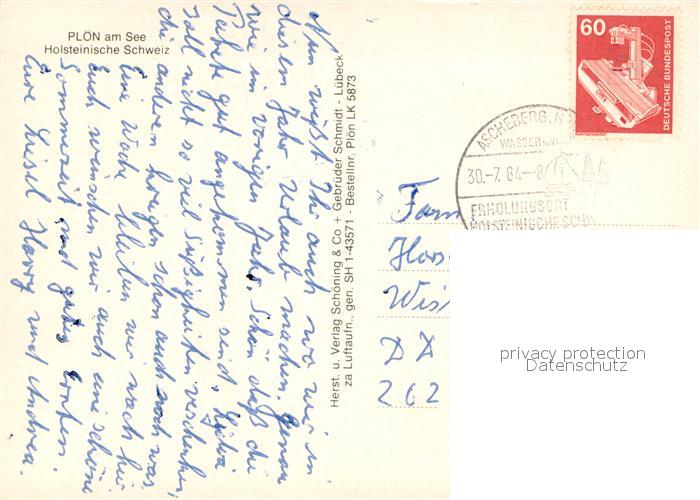 PLÖN am See
Holsteinische Schweiz
Nun wißt Ihr auch wo wir in
diesem Jahr Urlaub machen. Genau
wie im vorigen Jahr. Schön daß die
Pakete gut angekommen sind. Sylvia
soll nicht so viel Süßigkeiten veschenken,
die anderen kriegen schon auch noch was.
Eine Woche bleiben wir noch hier
Euch wünschen wir auch eine schöne
Sommerzeit und gutes Ernten.
Eure Liesel Harry und Andrea.
Herst. u. Verlag Schöning & Co + Gebrüder Schmidt - Lübeck
za Luftaufn., gen. SH 1-43571 - Bestellnr. Plön LK 5873
60
DEUTSCHE BUNDESPOST
ASCHEBERG, H
WASSER
30.-7. 84-8
ERHOLUNGSORT
HOLSTEINISCHE SCHW
Fam
Hors
Wis
DD
262
privacy protection
Datenschutz